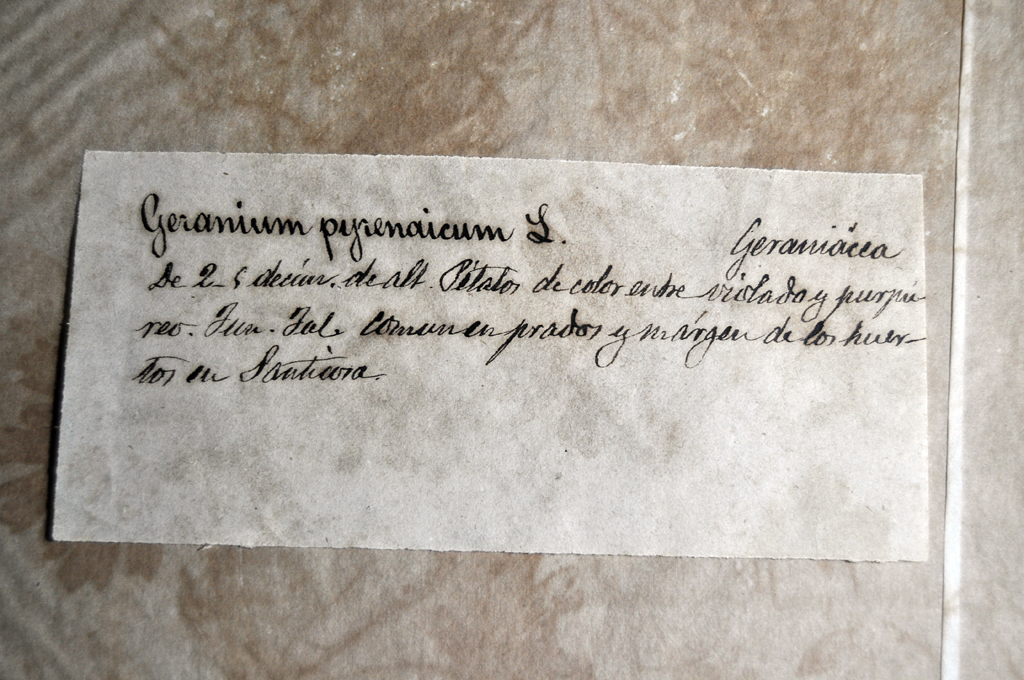 Geranium pyrenaicum L.
Geraniácea
De 2-5 decím. de alt. Pétalos de color entre violado y purpú-
reo. Jun. Jul. comun en prados y márgen de los huer-
tos en Panticosa.